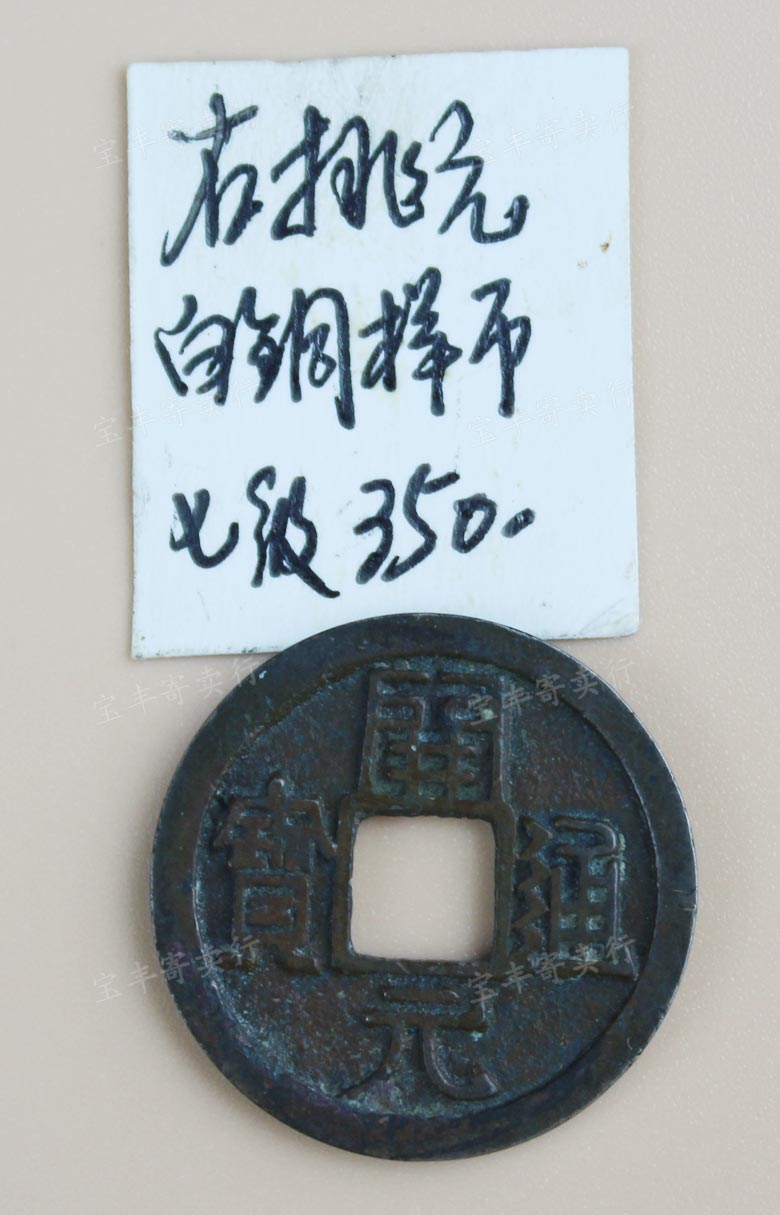 右挑元
白铜样币
七级 350.
開元通寶
宝丰寄卖行
宝丰寄卖行
宝丰寄卖行
宝丰寄卖行
宝丰寄卖行
宝丰寄卖行
宝丰寄卖行
宝丰寄卖行